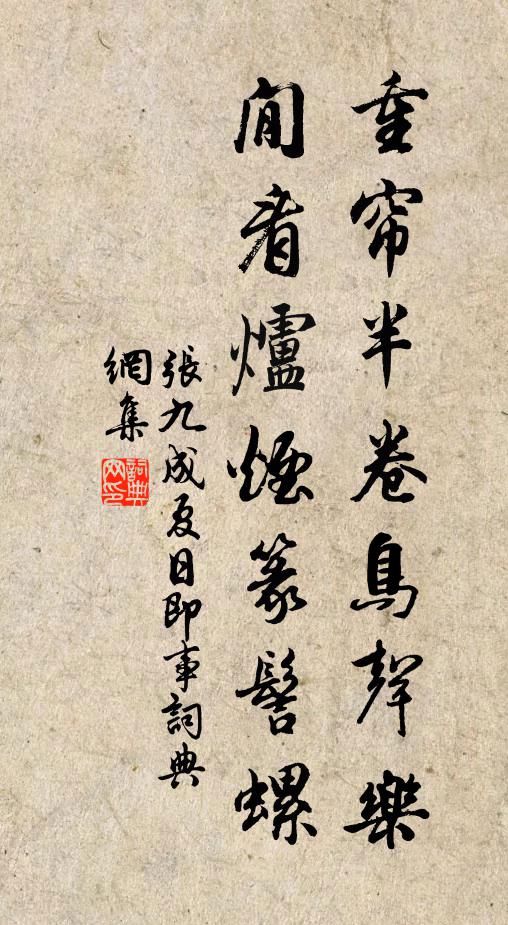 重帘半卷鳥聲樂
閒看爐煙篆髻螺
張九成夏日即事詞典
網集
詞典網印